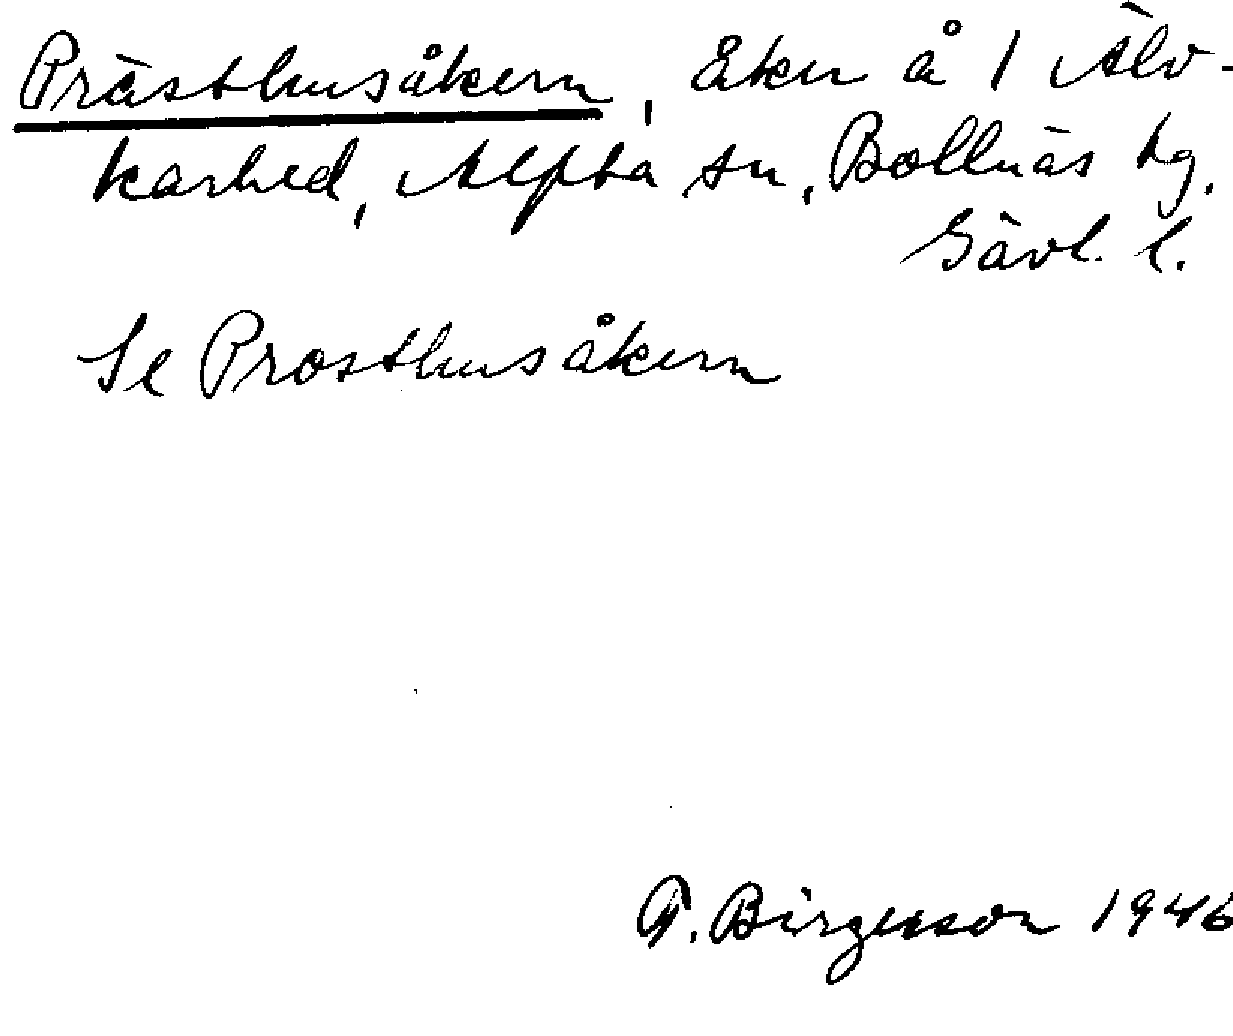 Prästhusåkern, Åker å 1 Älv-
karhed, Alfta sn, Bollnäs tg.
Gävl. l.
Se Prosthusåkern
T. Birgersson 1946